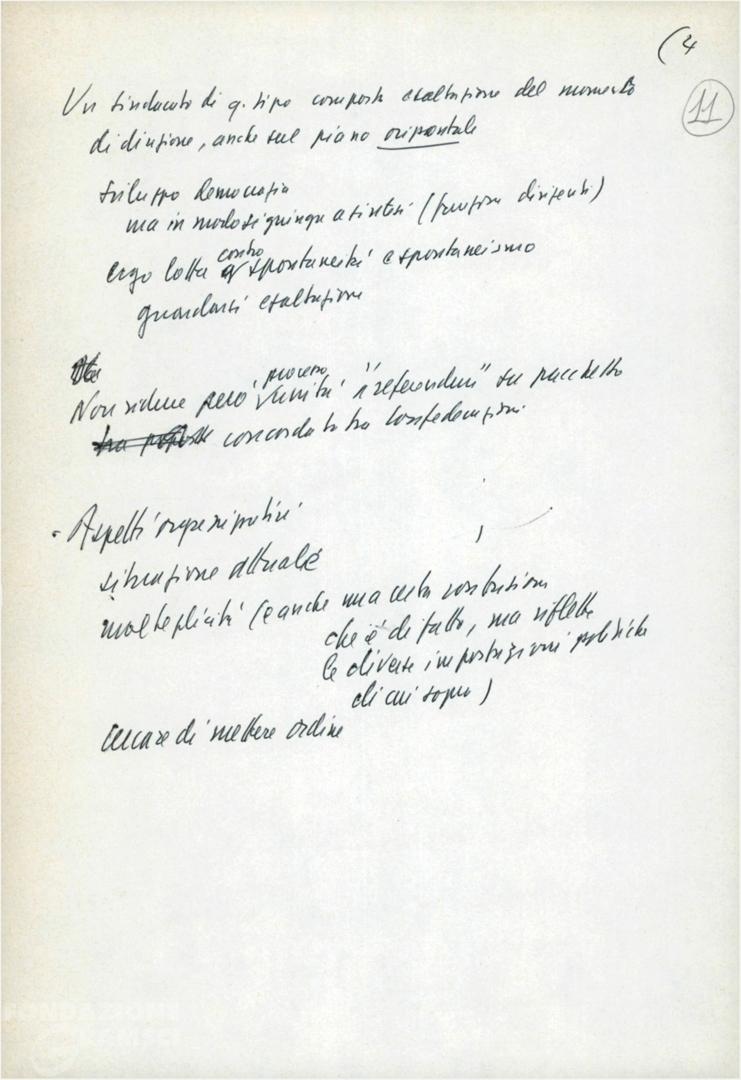 (4
11
Un sindacato di q. tipo comporta esaltazione del momento
di direzione, anche sul piano orizzontale
sviluppo democrazia
ma in modo si giunga a sintesi (funzione dirigenti)
ergo lotta contro spontaneità e spontaneismo
guardarsi esaltazione
Non ridurre però processo unità a "referendum" su pacchetto
concordato tra Confederazioni
- Aspetti organizzativi
situazione attuale
molteplicità (e anche una certa confusione
che è di fatto, ma riflette
le diverse impostazioni politiche
di cui sopra)
cercare di mettere ordine
FONDAZIONE
GRAMSCI